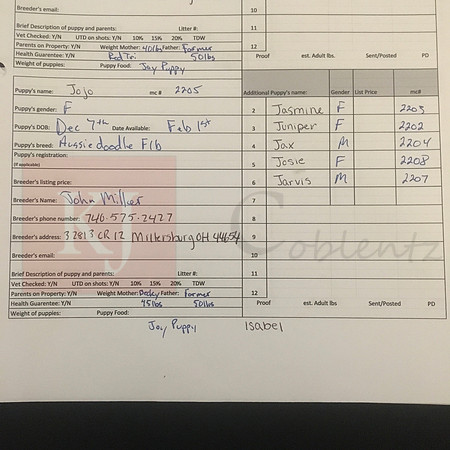 Breeder's email: 10
Brief Description of puppy and parents: Litter #: 11
Vet Checked: Y/N UTD on shots: Y/N 10% 15% 20% TDW
Parents on Property: Y/N Weight Mother: 40lbs Father: Farmer 12
Health Guarantee: Y/N Red Tri 50lbs Proof est. Adult lbs Sent/Posted PD
Weight of puppies: Puppy Food: Joy Puppy
Puppy's name: Jojo mc # 2205 Additional Puppy's name: Gender List Price mc#
Puppy's gender: F 2 Jasmine F 2203
Puppy's DOB: Dec 7th Date Available: Feb 1st 3 Juniper F 2202
Puppy's breed: Aussiedoodle F1b 4 Jax M 2204
Puppy's registration: 5 Josie F 2208
(if applicable)
Breeder's listing price: 6 Jarvis M 2207
Breeder's Name: John Miller 7
Breeder's phone number: 740-575-2427 8
Breeder's address: 32813 CR 12 Millersburg OH 44654 9
KJ Coblentz
Breeder's email: 10
Brief Description of puppy and parents: Litter #: 11
Vet Checked: Y/N UTD on shots: Y/N 10% 15% 20% TDW
Parents on Property: Y/N Weight Mother: Father: Farmer 12
Health Guarantee: Y/N 45lbs 50lbs Proof est. Adult lbs Sent/Posted PD
Weight of puppies: Puppy Food:
Joy Puppy Isabel